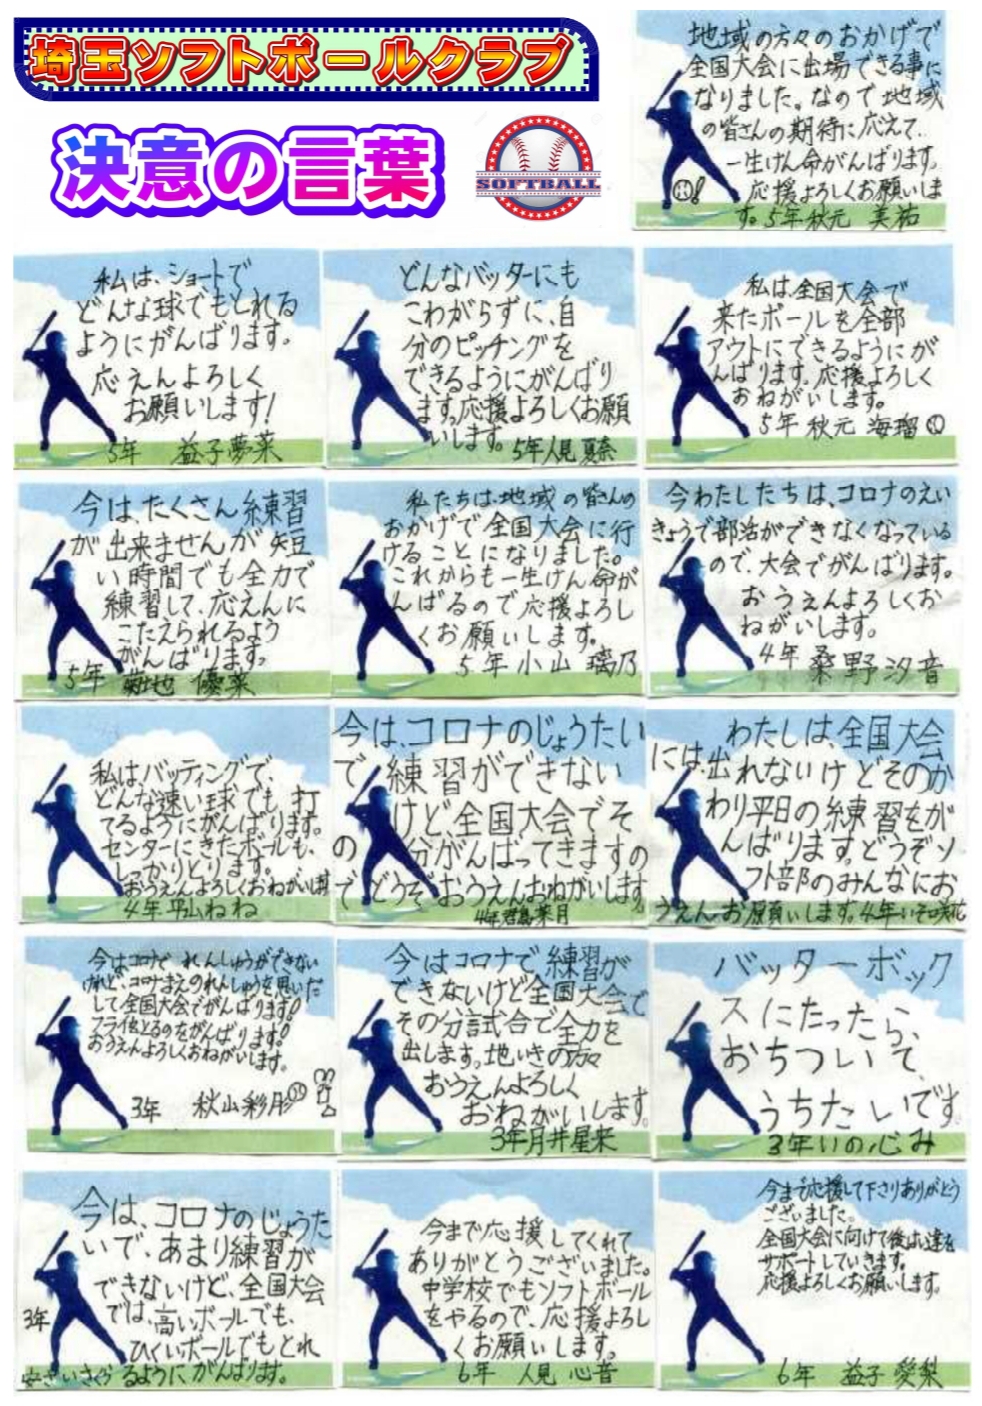 埼玉ソフトボールクラブ
決意の言葉
SOFTBALL
地域の方々のおかげで
全国大会に出場できる事に
なりました。なので地域
の皆さんの期待に応えて、
一生けん命がんばります。
応援よろしくお願いしま
す。5年秋元 美祐
私は、ショートで
どんな球でもとれる
ようにがんばります。
応えんよろしく
お願いします!
5年 益子夢菜
どんなバッターにも
こわがらずに、自
分のピッチングを
できるようにがんばり
ます。応援よろしくお願
いします。
5年人見 夏奈
私は、全国大会で
来たボールを全部
アウトにできるようにが
んばります。応援よろしく
おねがいします。
5年 秋元 海瑠
今は、たくさん練習
が出来ませんが短
い時間でも全力で
練習して、応えんに
こたえられるよう
がんばります。
5年 菊地 優菜
私たちは、地域の皆さんの
おかげで全国大会に行
けることになりました。
これからも一生けん命が
んばるので応援よろし
くお願いします。
5年 小山 璃乃
今わたしたちは、コロナのえい
きょうで部活ができなくなっている
ので、大会でがんばります。
おうえんよろしくお
ねがいします。
4年 桑野汐音
私は、バッティングで、
どんな速い球でも、打
てるようにがんばります。
センターにきたボールも、
しっかりとります。
おうえんよろしくおねがいします
4年 平山ねね
今は、コロナのじょうたい
で練習ができない
けど全国大会でそ
の分がんばってきますの
でどうぞおうえんおねがいします
4年 君島菜月
わたしは、全国大会
には、出れないけどそのか
わり平日の練習をが
んばります。どうぞソ
フト部のみんなにお
うえんお願いします。4年いその咲花
今はコロナで れんしゅうができない
けれど、コロナまえのれんしゅうを思いだ
して全国大会でがんばります!
フライをとるのをがんばります!
おうえんよろしくおねがいします。
3年 秋山彩月
今はコロナで練習が
できないけど全国大会で
その分試合で全力を
出します。地いきの方々
おうえんよろしく
おねがいします。
3年月井星来
バッターボック
スにたったら、
おちついて、
うちたいです。
3年いの心み
今は、コロナのじょうた
いで、あまり練習が
できないけど、全国大会
では、高いボールでも、
ひくいボールでもとれ
るようにがんばります。
3年
今まで応援してくれて
ありがとうございました。
中学校でもソフトボール
をやるので、応援よろし
くお願いします。
6年 人見 心音
今まで応援して下さりありがとう
ございました。
全国大会に向けて後はい達を
サポートしていきます。
応援よろしくお願いします。
6年 益子 愛梨